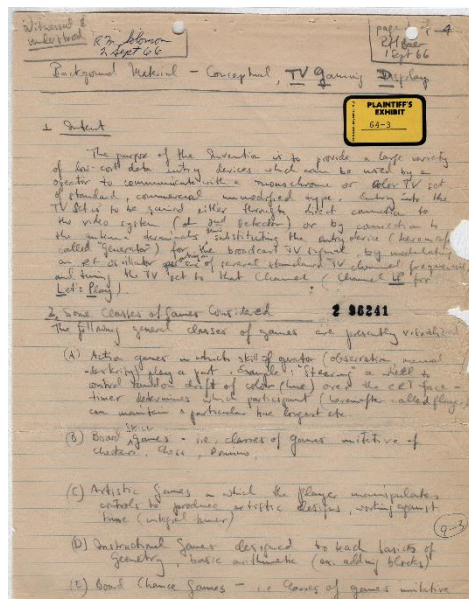 Witnessed &
understood
R.M. Solomon
2 Sept 66
page 1 of 4
RHBaer
1 Sept 66
Background Material – Conceptual, TV Gaming Display
PLAINTIFF'S
EXHIBIT
64-3
1. Intent
The purpose of the Invention is to provide a large variety
of low-cost data entry devices which can be used by a
operator to communicate with a monochrome or color TV set
of standard, commercial unmodified type. Entry into the
TV Set is to be gained either through direct connection to
the video system (at 2nd detector) or by connection to
the antenna terminals thus substituting the entry device (hereinafter
called "generator") for the broadcast TV signal, by modulating
an r.f. oscillator one of several standard TV channel frequencies
and tuning the TV set to that Channel (Channel LP for
Let's Play!)
2. Some Classes of Games Considered
2 98241
The following general classes of games are presently visualized
(A) Action games in which skill of operator (observation, manual
dexterity) play a part. Example: "Steering" a wheel to
control random drift of color (hue) over the CRT face -
timer determines which participant (hereafter called player)
can maintain a particular hue longest etc.
(B) Board Skill Games - i.e. classes of games imitative of
checkers, Chess, Domino,
(C) Artistic Games in which the player manipulates
controls to produce artistic designs, working against
time (integral timer)
9-3
(D) Instructional Games designed to teach basics of
Geometry, basic arithmetic (ex. adding blocks)
(E) Board Chance Games - i.e. Classes of games imitative